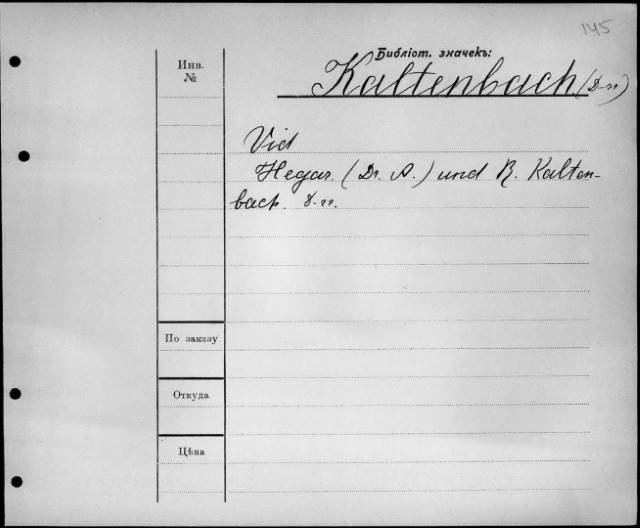 145
Библіот. значекъ:
Инв.
№
Kaltenbach (D-r)
Vid
Hegar. (Dr. A.) und R. Kalten-
bach.
По заказу
Откуда
Цѣна